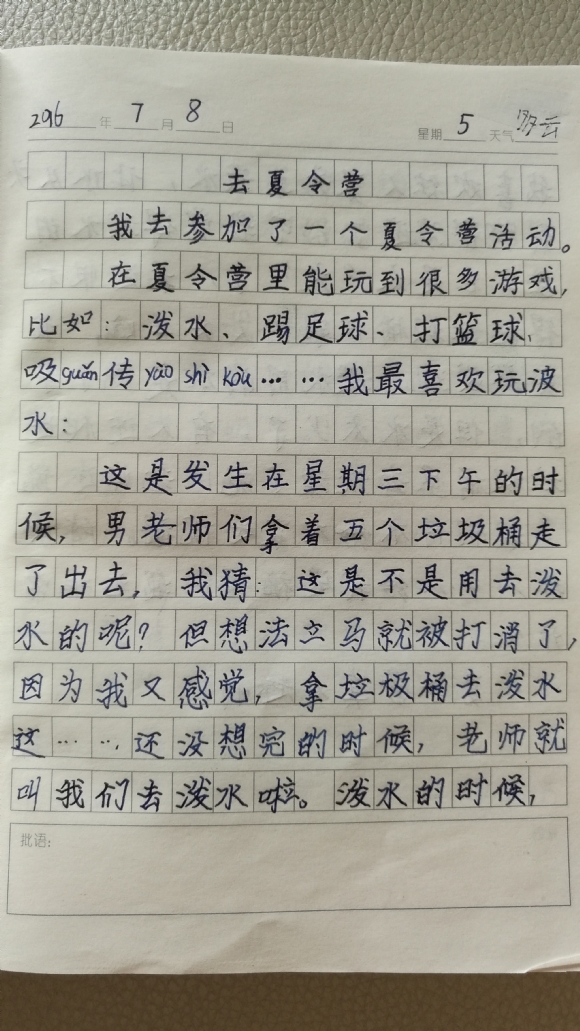 2016年7月8日 星期5天气多云
去夏令营
我去参加了一个夏令营活动。
在夏令营里能玩到很多游戏,
比如:泼水、踢足球、打篮球、
吸guǎn传yào shi kòu……我最喜欢玩波
水:
这是发生在星期三下午的时
候,男老师们拿着五个垃圾桶走
了出去,我猜:这是不是用去泼
水的呢?但想法立马就被打消了,
因为我又感觉,拿垃极桶去泼水
这……还没想完的时候,老师就
叫我们去泼水啦。泼水的时候,
批语: